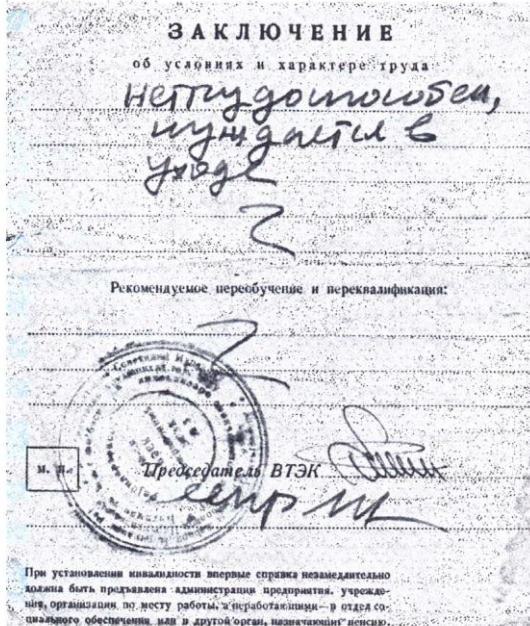 ЗАКЛЮЧЕНИЕ
об условиях и характере труда
нетрудоспособен,
нуждается в
уходе
Рекомендуемое переобучение и переквалификация:
М. П.
Председатель ВТЭК
При установлении инвалидности впервые справка незамедлительно
должна быть предъявлена администрации предприятия, учрежде-
ния, организации по месту работы, а неработающими — в отдел со-
циального обеспечения или в другой орган, назначающий пенсию.